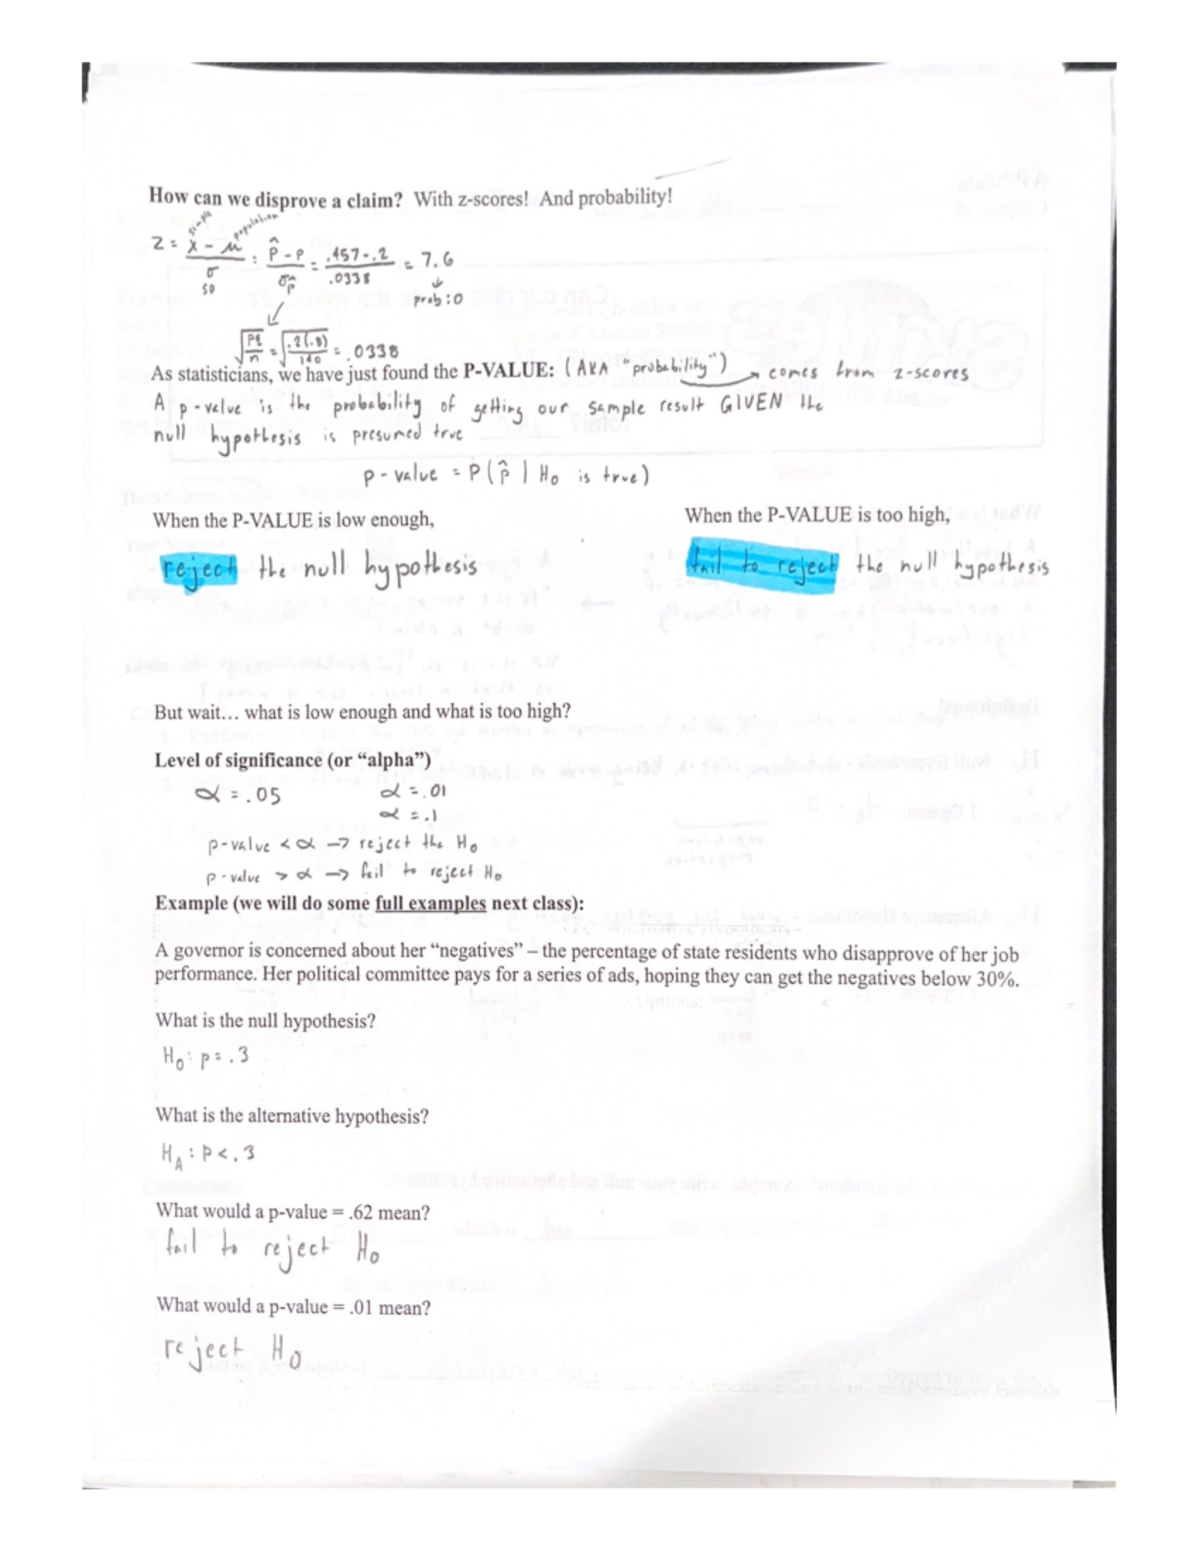 How can we disprove a claim? With z-scores! And probability!
sample population
z = x - μ / σ = p̂ - p / σp̂ = .457-.2 / .0338 = 7.6
SD
prob: 0
√pq/n = √.2(.8)/140 = .0338
As statisticians, we have just found the P-VALUE: (AKA "probability") → comes from z-scores
A p-value is the probability of getting our sample result GIVEN the
null hypothesis is presumed true
p-value = P(p̂ | H₀ is true)
When the P-VALUE is low enough,
reject the null hypothesis
When the P-VALUE is too high,
fail to reject the null hypothesis
But wait… what is low enough and what is too high?
Level of significance (or “alpha”)
α = .05 α = .01
α = .1
p-value < α → reject the H₀
p-value > α → fail to reject H₀
Example (we will do some full examples next class):
A governor is concerned about her “negatives” – the percentage of state residents who disapprove of her job
performance. Her political committee pays for a series of ads, hoping they can get the negatives below 30%.
What is the null hypothesis?
H₀: p = .3
What is the alternative hypothesis?
H_A: p < .3
What would a p-value = .62 mean?
fail to reject H₀
What would a p-value = .01 mean?
reject H₀